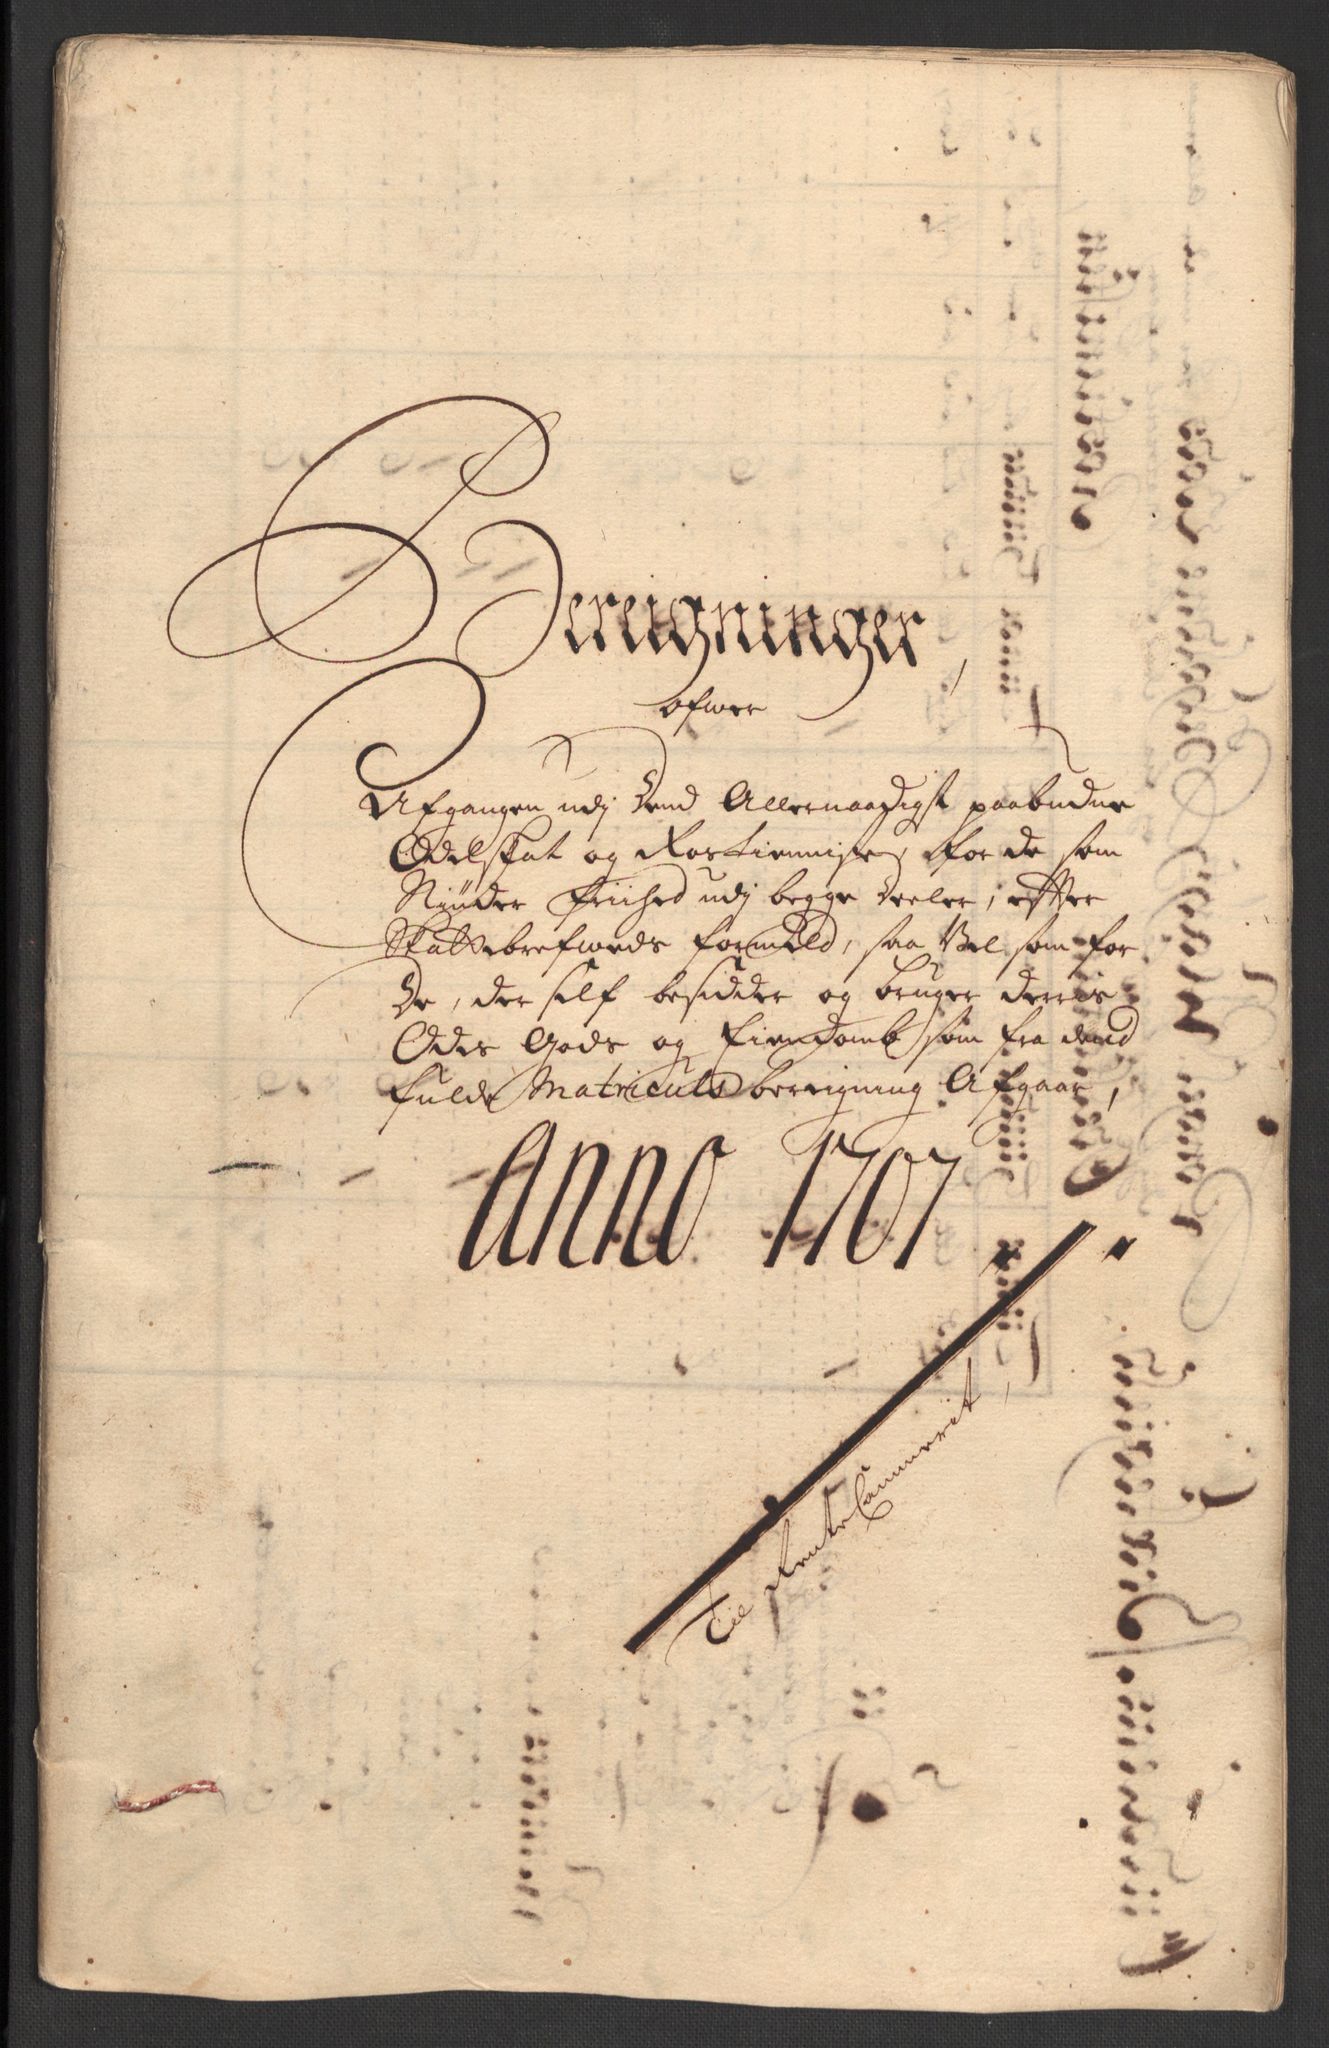 Bereigninger,
ofwer
Afgangen udj dend Allernaadigst paabudne
Odelskat og Rostienniste, for de som
Niuder Friihed udj begge deeler, efter
Skattebrefweds formeld, saa Vel som for
De, der self besidder og bruger derris
Odels Gods og Eiendomb som fra dend
fulde Matriculs bereigning Afgaar,
Anno 1707
Til Rente Cammerit,